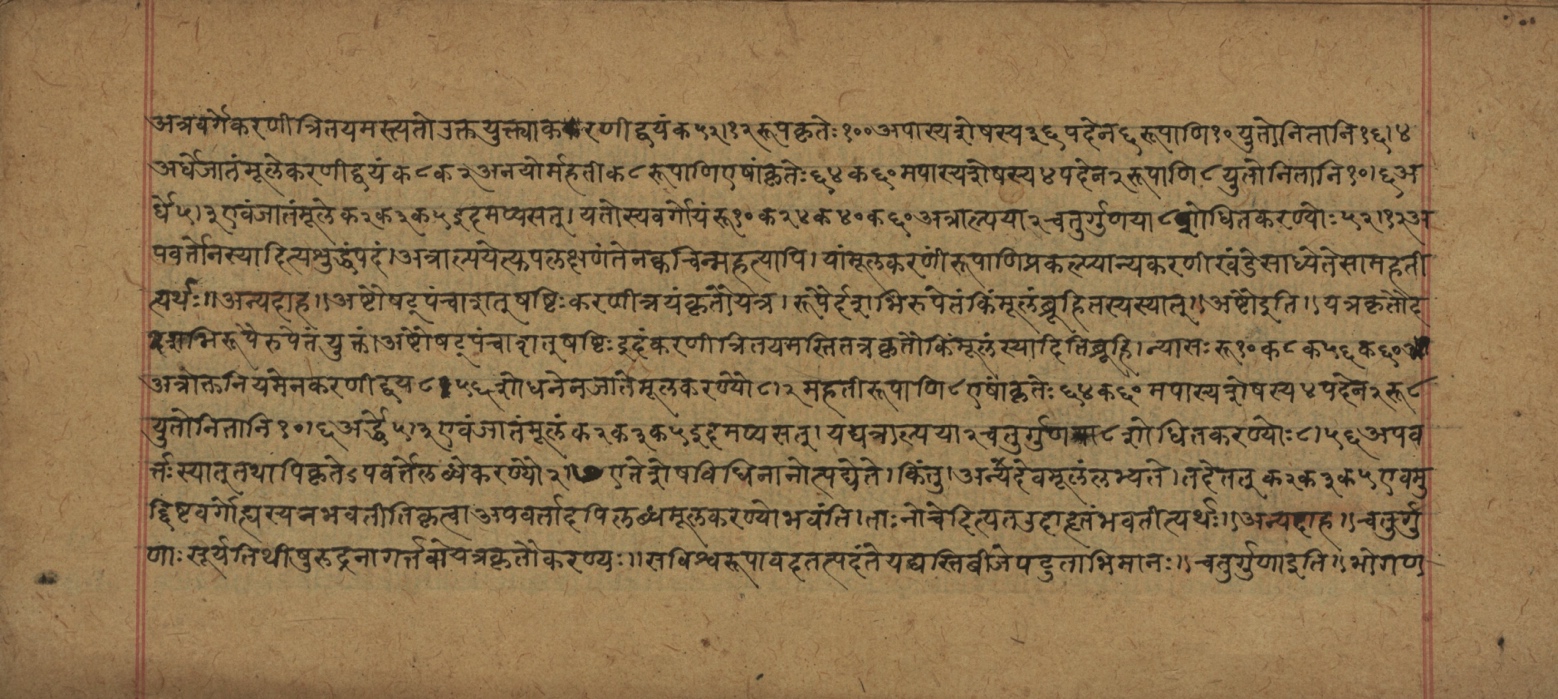 अत्रवर्गेकरणीत्रितयमस्त्यतोउक्तयुक्त्याककरणीद्वयंक५२।१२रूपकृतेः१००अपास्यशेषस्य३६पदेन६रूपाणि१०युतोनितानि१६।४
अर्धेजातंमूलेकरणीद्वयंक८क२अनयोर्महतीक८रूपाणिएषांकृतेः६४क६०मपास्यशेषस्य४पदेन२रूपाणि८युतोनितानि१०।६अ
र्धे५।३एवंजातंमूलेक२क३क५इदमप्यसत्।यतोस्यवर्गोयंरू१०क२४क४०क६०अत्राल्पया२चतुर्गुणया८शोधितकरण्योः५२।१२अ
पवर्तोनस्यादित्यशुद्धंपदं।अत्राल्पयेत्युपलक्षणंतेनक्वचिन्महत्यापि।यांमूलकरणींरूपाणिप्रकल्प्यान्यकरणीखंडेसाध्येतेसामहती
त्यर्थः॥अन्यदाह॥अष्टौषट्पंचाशत्षष्टिःकरणीत्रयंकृतौयत्र।रूपैर्दशभिरुपेतंकिंमूलंब्रूहितस्यस्यात्॥अष्टौइति॥यत्रकृतौद
शभिरूपैरुपेतंयुक्तं।अष्टौषट्पंचाशत्षष्टिःइदंकरणीत्रितयमस्तितत्रकृतौकिंमूलंस्यादितिब्रूहि।न्यासःरू१०क८क५६क६०
अत्रोक्तनियमेनकरणीद्वय८।५६शोधनेनजातेमूलकरण्यौ८।२महतीरूपाणि८एषांकृतेः६४क६०मपास्यशेषस्य४पदेन२रू८
युतोनितानि१०।६अर्द्धे५।३एवंजातंमूलंक२क३क५इदमप्यसत्।यद्यत्राल्पया२चतुर्गुणया८शोधितकरण्योः८।५६अपव
र्त्तःस्यात्तथापिकृतेऽपवर्त्तेलब्धेकरण्यौ१।७एतेशेषविधिनानोत्पद्येते।किंतु।अन्यदेवमूलंलभ्यते।तदेतत्क२क३क५एवमु
द्दिष्टवर्गोह्यस्यनभवतीतिकृत्वाअपवर्तादपिलब्धमूलकरण्योभवंति।ताःनोचेदित्यतउदाहृतंभवतीत्यर्थः॥अन्यदाह॥चतुर्गु
णाःसूर्यतिथीषुरुद्रनागर्त्तवोयत्रकृतौकरण्यः॥सविश्वरूपावदतत्पदंतेयद्यस्तिबीजेपटुताभिमानः॥चतुर्गुणाइति॥भोगण